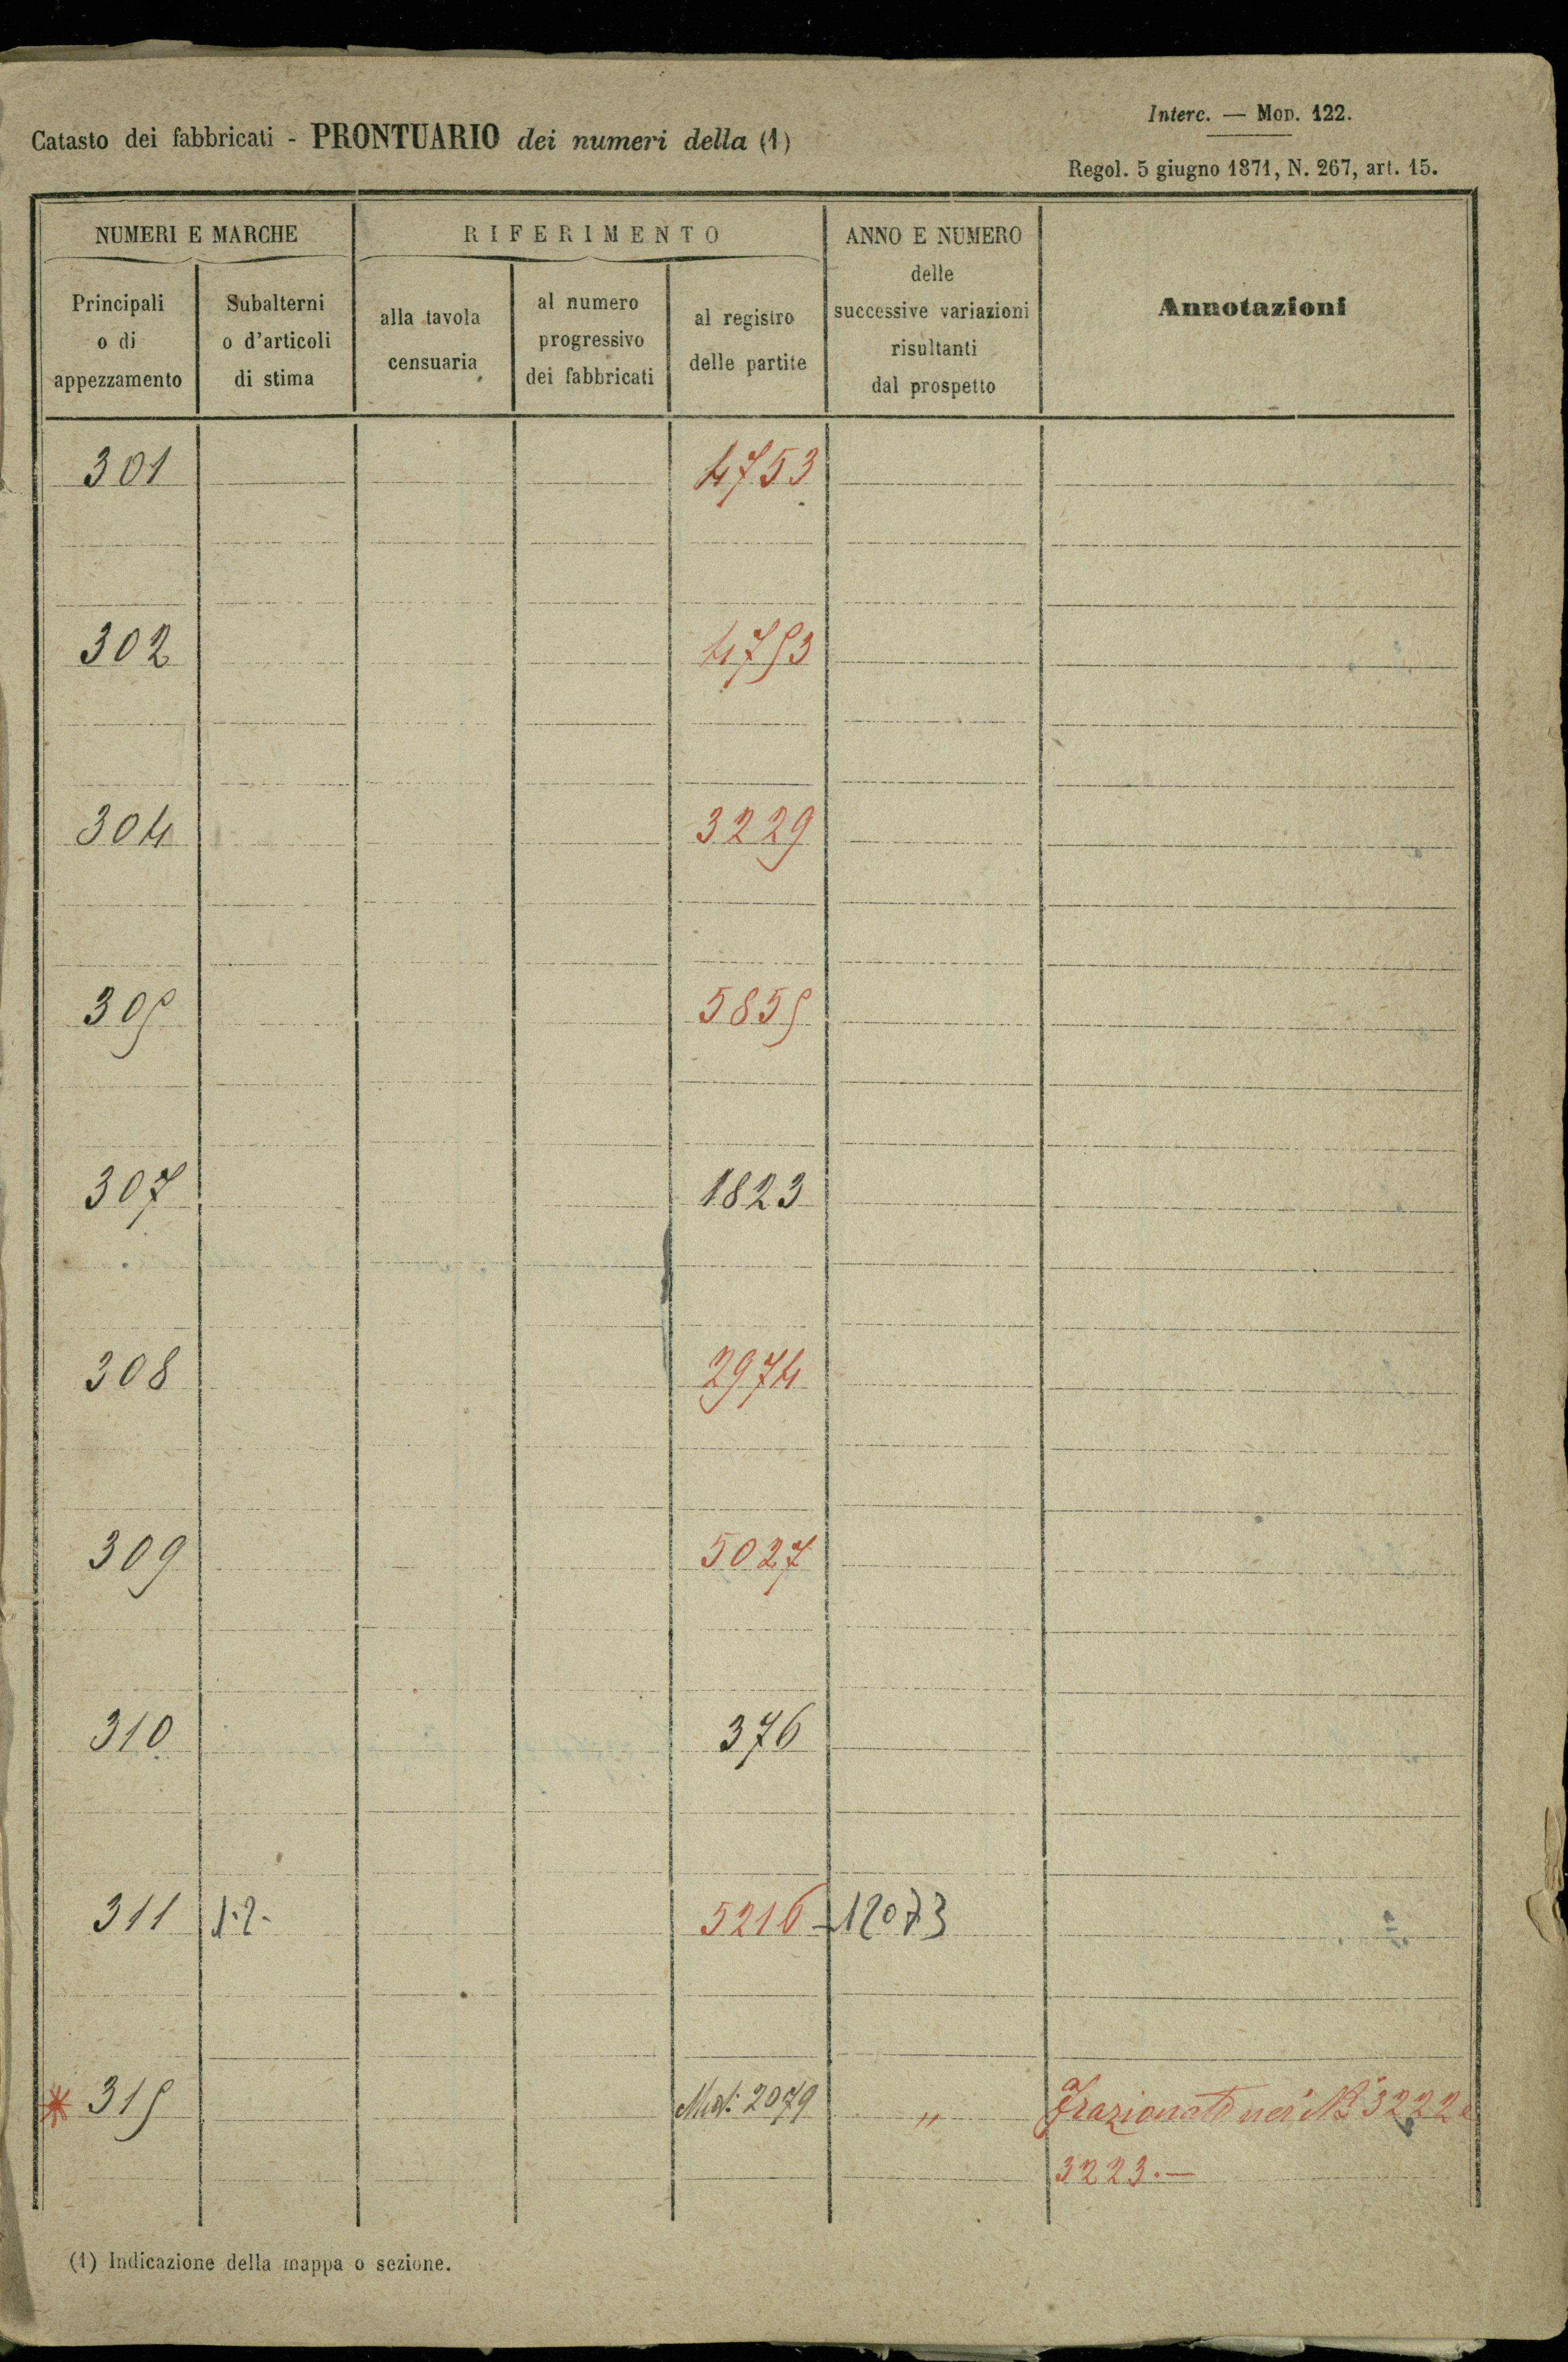 Interc. — Mod. 122.
Catasto dei fabbricati - PRONTUARIO dei numeri della (1)
Regol. 5 giugno 1871, N. 267, art. 15.
NUMERI E MARCHE
RIFERIMENTO
ANNO E NUMERO
delle
successive variazioni
risultanti
dal prospetto
Annotazioni
Principali
o di
appezzamento
Subalterni
o d'articoli
di stima
alla tavola
censuaria
al numero
progressivo
dei fabbricati
al registro
delle partite
301 4753
302 4753
304 3229
305 5855
307 1823
308 2974
309 5027
310 376
311 1.2. 5216 - 12073
* 315 2079 " Frazionato nei Ni 3222 e
3223.—
(1) Indicazione della mappa o sezione.